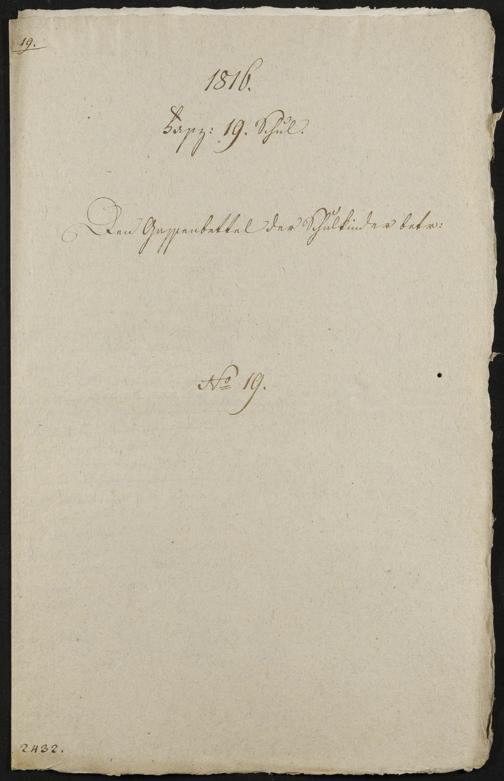 19.
1816.
19. Schul.
Den Gassenbettel der Schulkinder betr:
No 19.
2432.